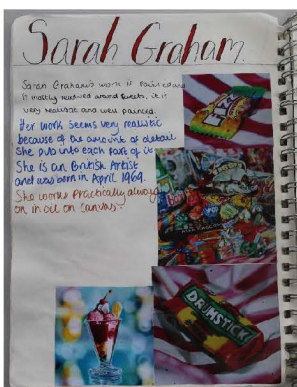 Sarah Graham.
Sarah Graham's work is
it mostly revolved around sweets. it is
very realistic and well painted.
Her work seems very realistic
because of the amount of detail
She puts into each part of it
She is an British Artist
and was born in April 1969.
She works practically always
on in oil on canvas.
DRUMSTICK